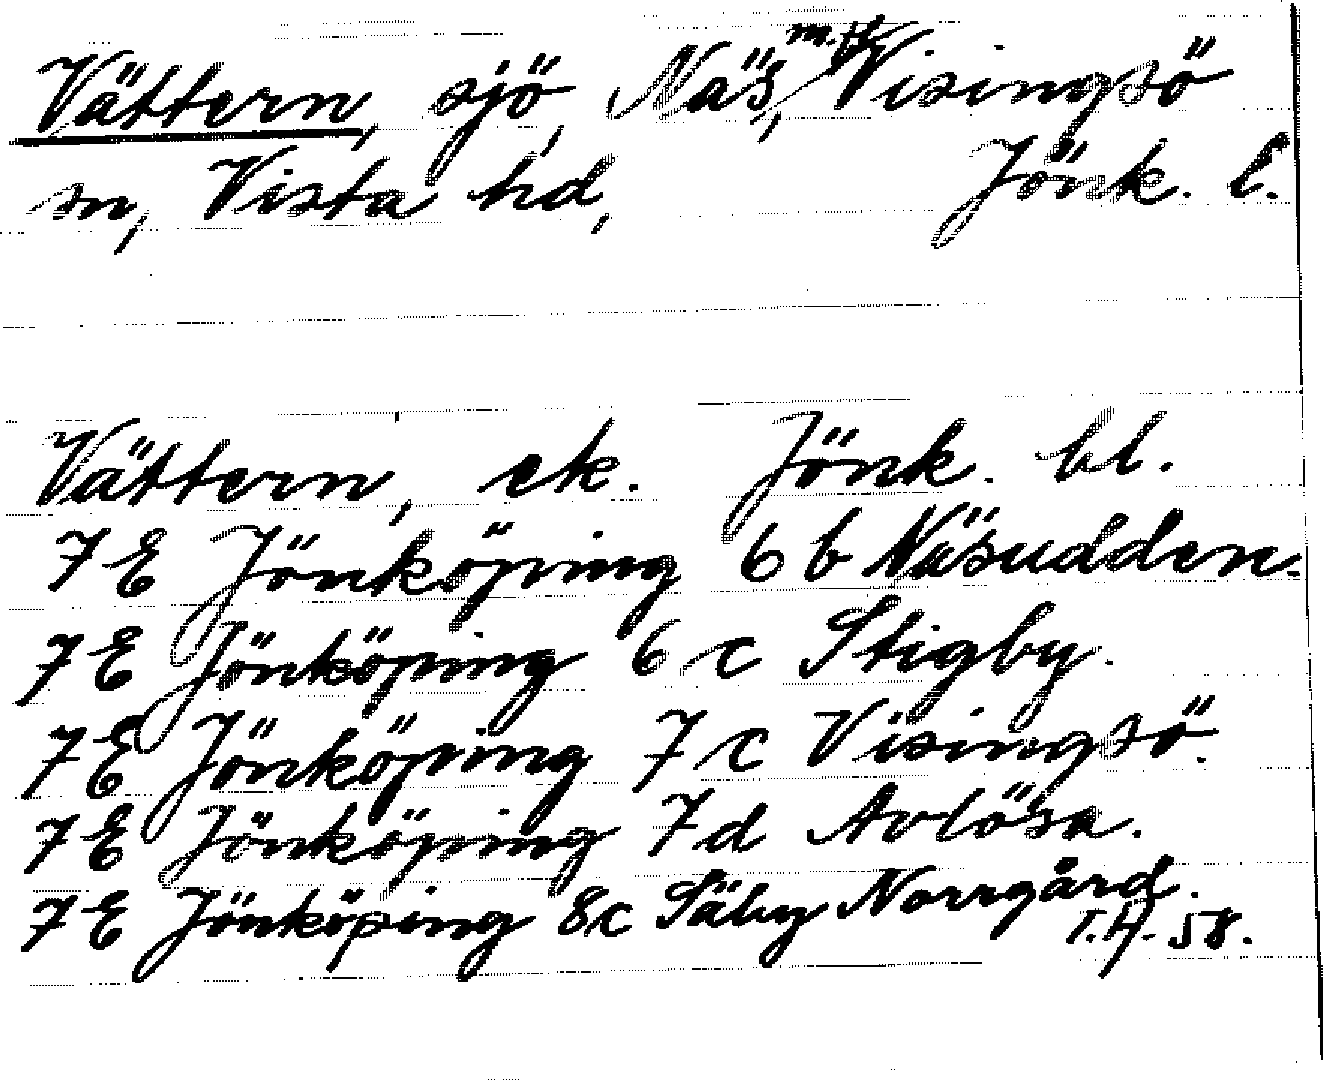 Vättern, sjö, Näs, m.fl. Visingsö
sn, Vista hd, Jönk. l.
Vättern, ek. Jönk. bl.
7E Jönköping 6 b Näsudden.
7E Jönköping 6 c Stigby.
7E Jönköping 7 c Visingsö.
7E Jönköping 7d Avlösa.
7E Jönköping 8c Säby Norrgård.
T.H. 58.